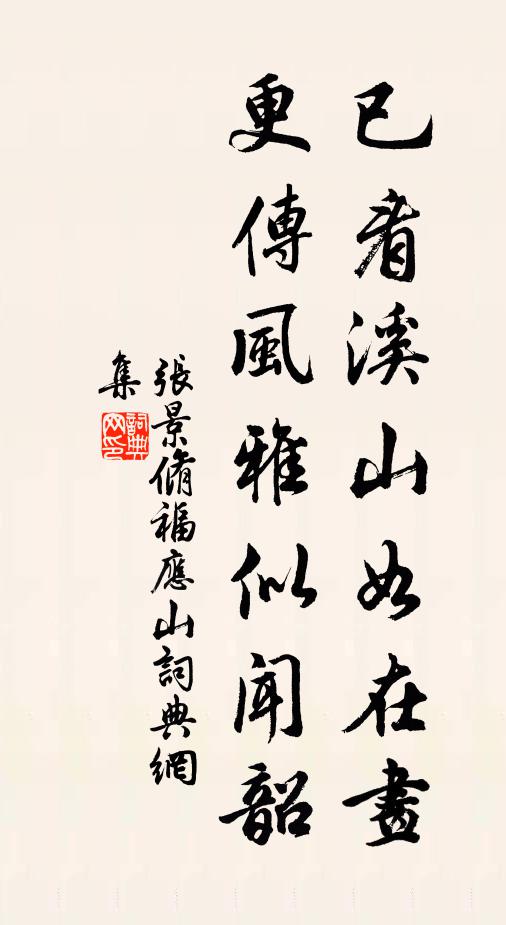 已看溪山如在畫
更傳風雅似聞韶
張景脩福應山詞典網
集
詞典
网印